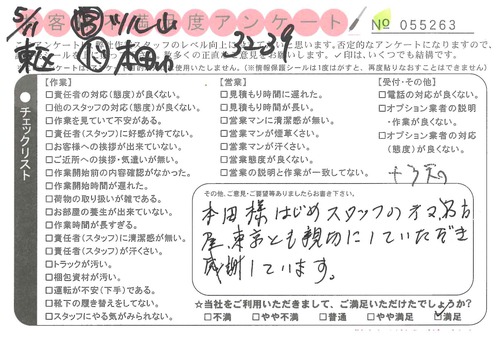 5/11
お客様満足度アンケート
№ 055263
東区 本田
33-39
【作業】
□責任者の対応(態度)が良くない。
□他のスタッフの対応(態度)が良くない。
□作業を見ていて不安がある。
□責任者(スタッフ)に好感が持てない。
□お客様への挨拶が出来ていない。
□ご近所への挨拶・気遣いが無い。
□作業開始前の内容確認がなかった。
□作業開始時間が遅れた。
□荷物の取り扱いが雑である。
□お部屋の養生が出来ていない。
□作業時間が長すぎる。
□責任者(スタッフ)に清潔感が無い。
□責任者(スタッフ)が汗くさい。
□トラックが汚い。
□梱包資材が汚い。
□運転が不安(下手)である。
□靴下の履き替えをしてない。
□スタッフにやる気がみられない。
【営業】
□見積もり時間に遅れた。
□見積もり時間が長い。
□営業マンに清潔感が無い。
□営業マンが煙草くさい。
□営業マンが汗くさい。
□営業態度が良くない。
□営業の説明と作業が一致してない。
【受付・その他】
□電話の対応が良くない。
□オプション業者の説明
・作業が良くない。
□オプション業者の対応
(態度)が良くない。
● チェックリスト
その他、ご意見・ご要望等ありましたらお書き下さい。
本田様はじめスタッフの方々名古
屋、東京とも親切にしていただき
感謝しています。
☆当社をご利用いただきまして、ご満足いただけたでしょうか?
□不満 □やや不満 □普通 □やや満足 □満足